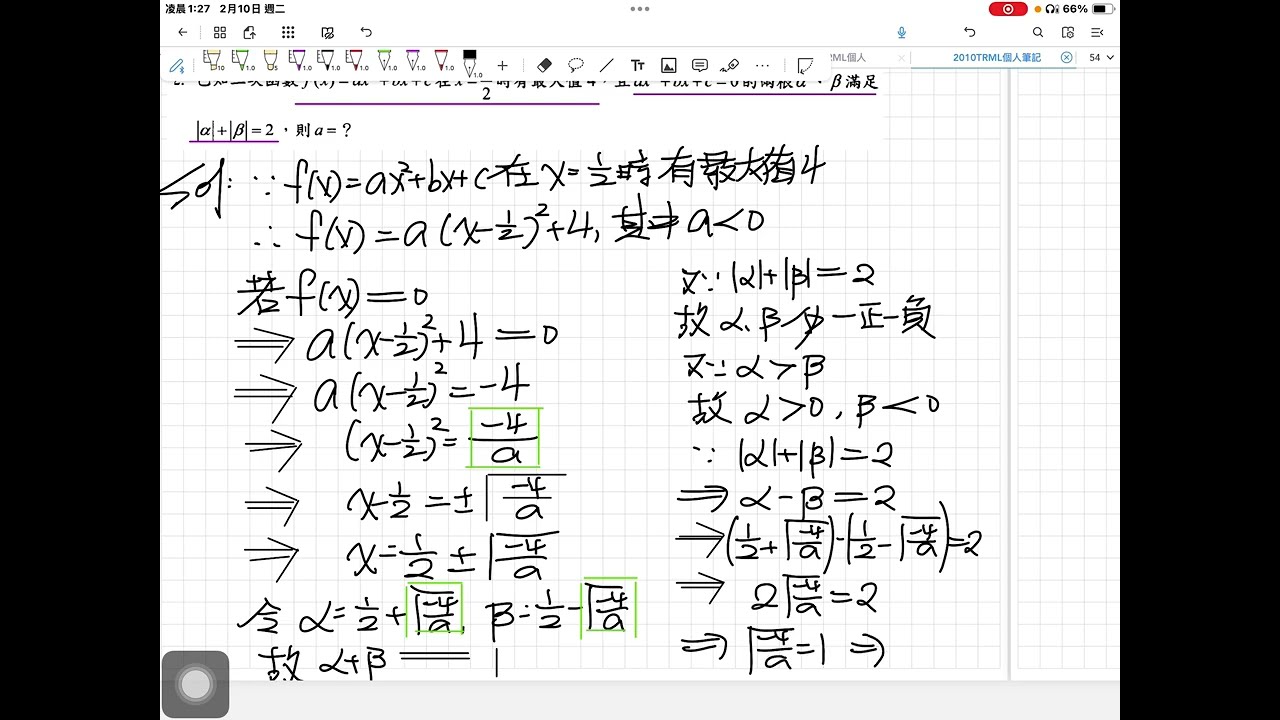 凌晨1:27 2月10日 週二
66%
RML個人
2010TRML個人筆記
54
已知二次函數 f(x)=ax²+bx+c 在 x=1/2 時有最大值 4，且 ax²+bx+c=0 的兩根 α、β 滿足
|α|+|β|=2，則 a=？
Sol: ∵ f(x)=ax²+bx+c 在 x=1/2 時有最大值4
∴ f(x)=a(x-1/2)²+4, 其中 a<0
若 f(x)=0
⇒ a(x-1/2)²+4=0
⇒ a(x-1/2)²=-4
⇒ (x-1/2)²=-4/a
⇒ x-1/2=±√(-4/a)
⇒ x=1/2±√(-4/a)
令 α=1/2+√(-4/a), β=1/2-√(-4/a)
故 α+β=1
又∵ |α|+|β|=2
故 α、β 為一正一負
又∵ α>β
故 α>0, β<0
∵ |α|+|β|=2
⇒ α-β=2
⇒ (1/2+√(-4/a))-(1/2-√(-4/a))=2
⇒ 2√(-4/a)=2
⇒ √(-4/a)=1 ⇒